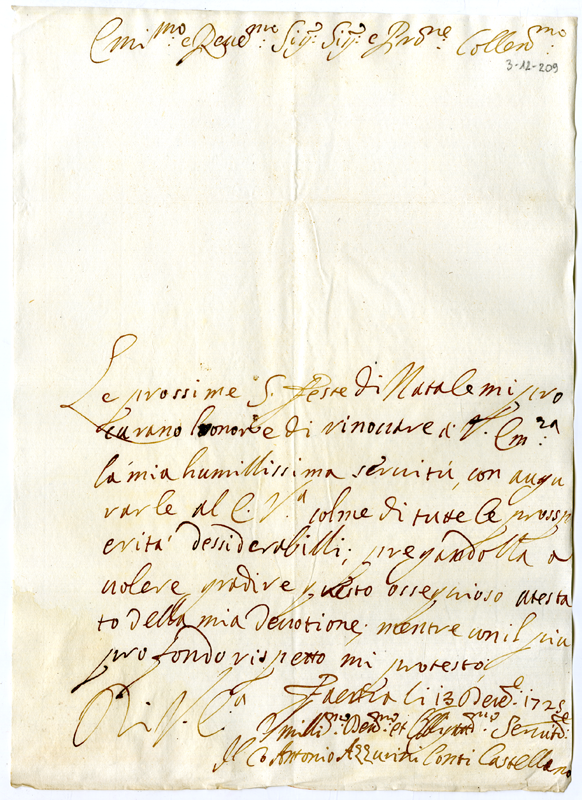 Em:mo e Reue:mo Sig:r Sig:r e Pro:ne Collen:mo
3-12-209
Le prossime S. Feste di Natale mi pro
curano l'onore di rinouare à V. Em:za
la mia humillissima seruitù, con augu
rarle al E. V.a colme di tutte le prossp
erità dessiderabilli; pregandolla a
uolere gradire questo ossequioso atesta
to della mia deuotione; mentre con il più
profondo rispetto mi protesto
Di V. E.a
Faenza li 13 Dece. 172
Umilli:mo Deu:mo et Obligat:mo Seruit:
Il Co Antonio Azzurini Conti Castellano